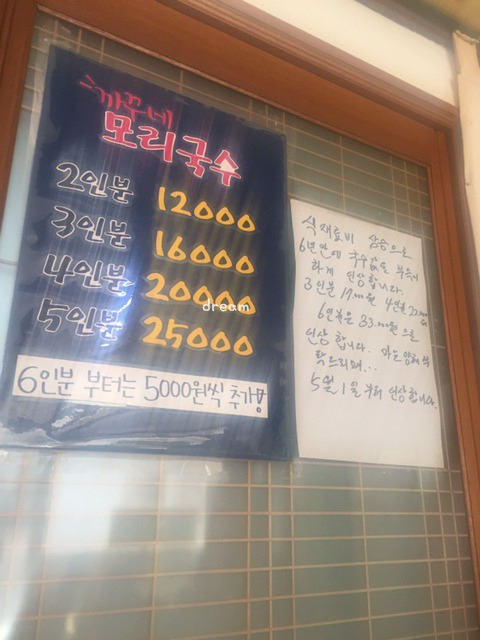 까꾸네
모리국수
2인분 12000
3인분 16000
4인분 20000
5인분 25000
6인분 부터는 5000원씩 추가!
dream
식재료비 상승으로
6년만에 국수값을 부득이
하게 인상합니다.
3인분 17.000원 4인분 22.000
6인분은 33.000원 으로
인상 합니다.
부탁드리며...
5월 1일 부터 인상합니다.